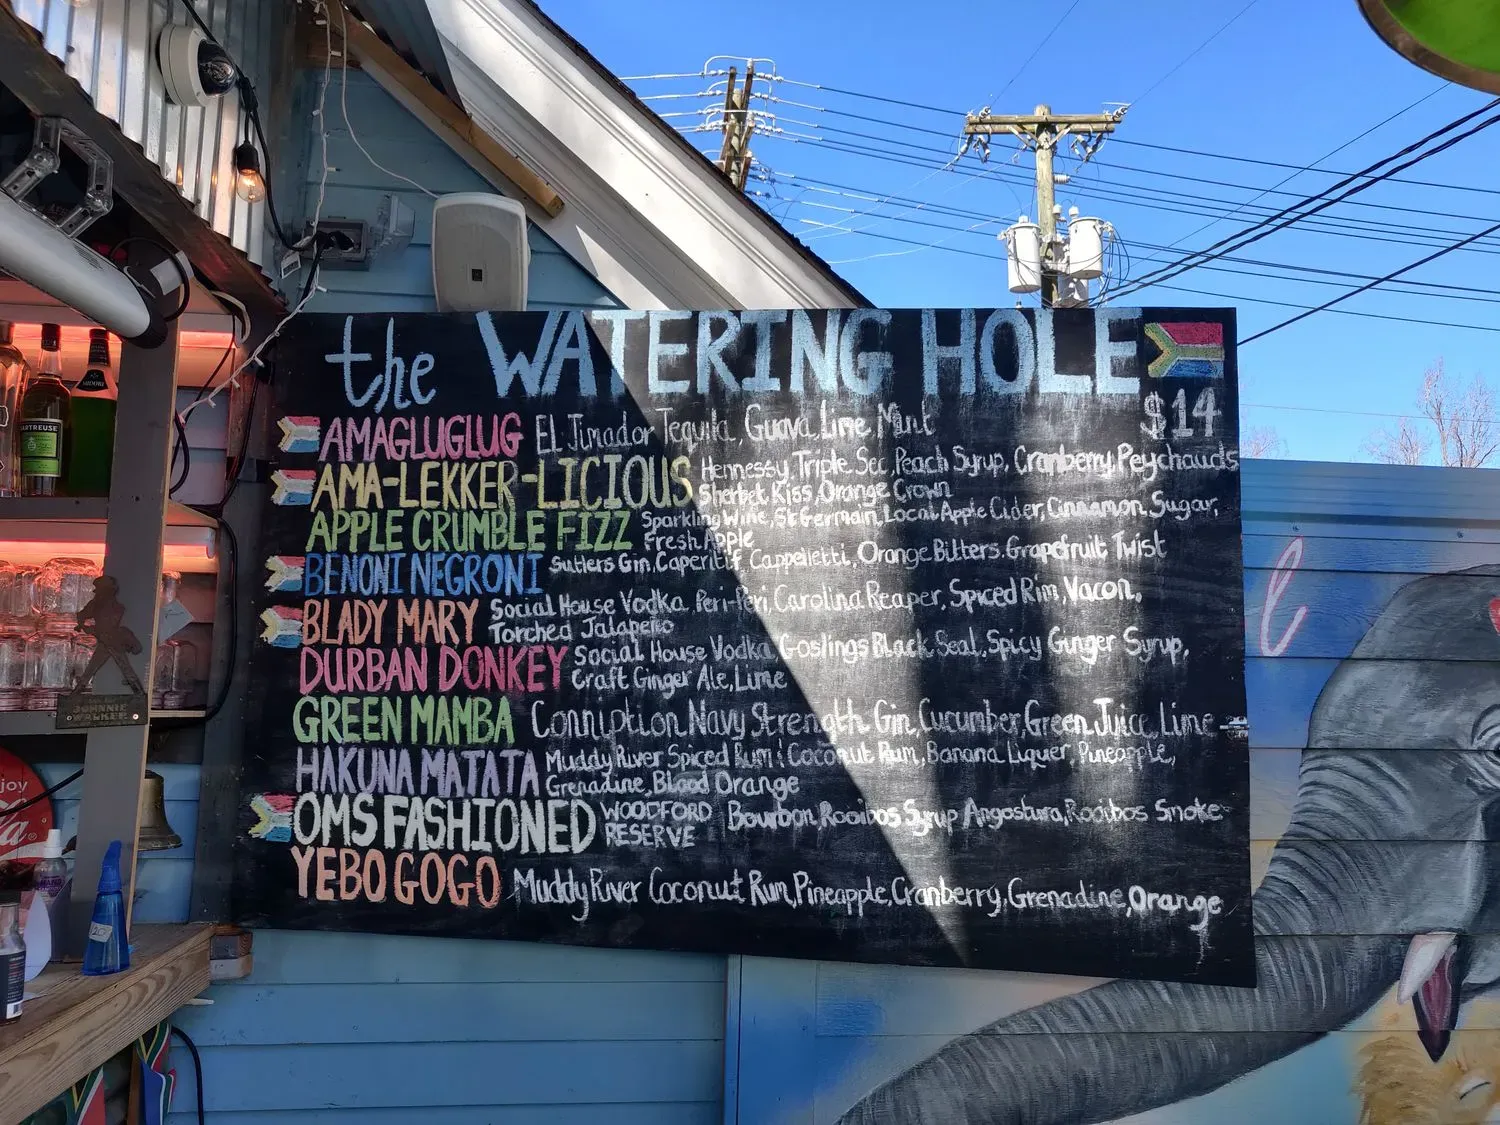 the WATERING HOLE
$14
AMAGLUGLUG El Jimador Tequila, Guava, Lime, Mint
AMA-LEKKER-LICIOUS Hennessy, Triple Sec, Peach Syrup, Cranberry, Peychauds
Sherbet Kiss, Orange Crown
APPLE CRUMBLE FIZZ Sparkling Wine, St Germain, Local Apple Cider, Cinnamon Sugar,
Fresh Apple
BENONI NEGRONI Sutlers Gin, Caperitif, Cappelletti, Orange Bitters, Grapefruit Twist
BLADY MARY Social House Vodka, Peri-Peri, Carolina Reaper, Spiced Rim, Vacon,
Torched Jalapeño
DURBAN DONKEY Social House Vodka, Goslings Black Seal, Spicy Ginger Syrup,
Craft Ginger Ale, Lime
GREEN MAMBA Conniption Navy Strength Gin, Cucumber, Green Juice, Lime
HAKUNA MATATA Muddy River Spiced Rum & Coconut Rum, Banana Liquer, Pineapple,
Grenadine, Blood Orange
OMS FASHIONED WOODFORD RESERVE Bourbon, Rooibos Syrup Angostura, Rooibos Smoke
YEBO GOGO Muddy River Coconut Rum, Pineapple, Cranberry, Grenadine, Orange
JOHNNIE
WALKER